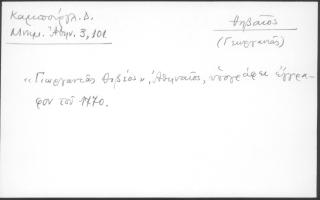 Καμπούρογλ. Δ.
Μνημ. Ἀθην. 3, 101
Θηβαῖος
(Γεωργαντᾶς)
«Γιωργαντᾶς Θηβέος», Ἀθηναῖος, ὑπογράφει ἔγγρα-
φον τοῦ 1770.